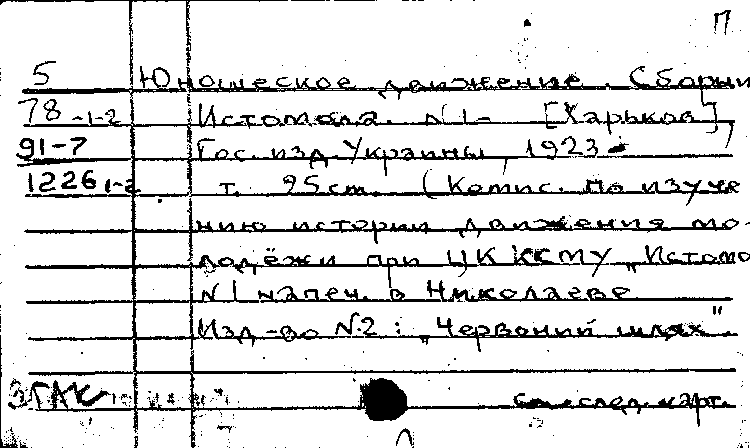 П
5 Юношеское движение. Сборни
78-1-2 Истомола. №1- [Харьков],
91-7 Гос. изд. Украины, 1923-
1226 1-2 т. 25 cm. (Комис. по изуче
нию истории движения мо-
лодёжи при ЦК КСМУ „Истомо
№1 напеч. в Николаеве
Изд-во №2: „Червоний шлях"
см. след. карт.